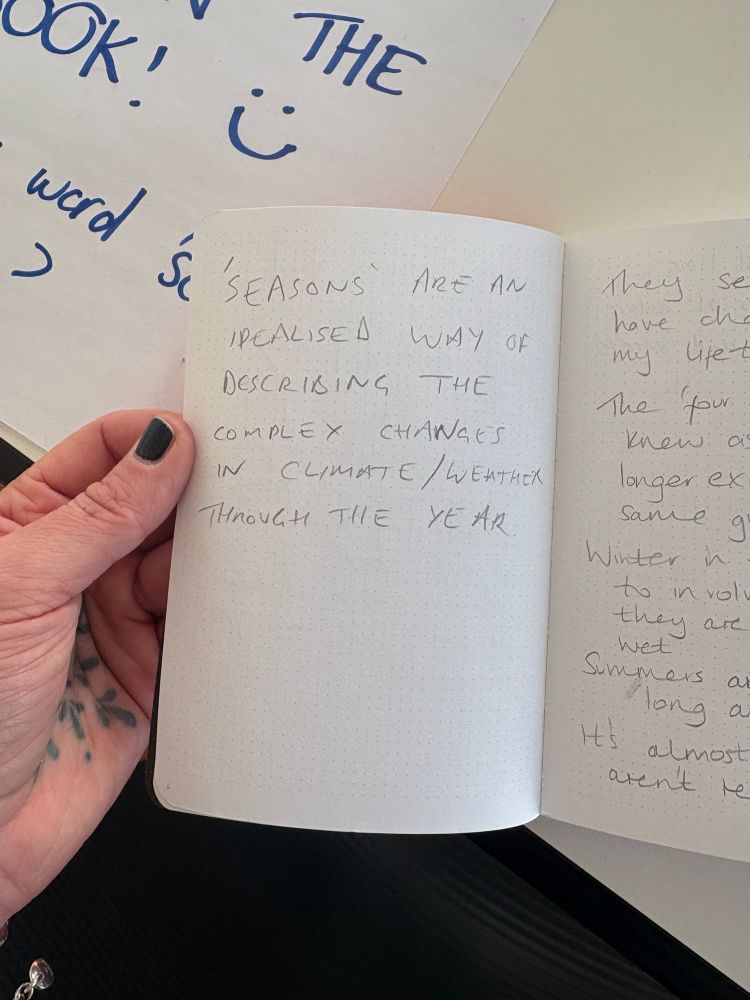 THE
OOK!
word
'SEASONS' ARE AN
IDEALISED WAY OF
DESCRIBING THE
COMPLEX CHANGES
IN CLIMATE/WEATHER
THROUGH THE YEAR.
They se
have cha
my lifet
The 'four
knew as
longer ex
same
Winter in
to invol
they are
wet
Summers a
long a
It's almost
aren't re